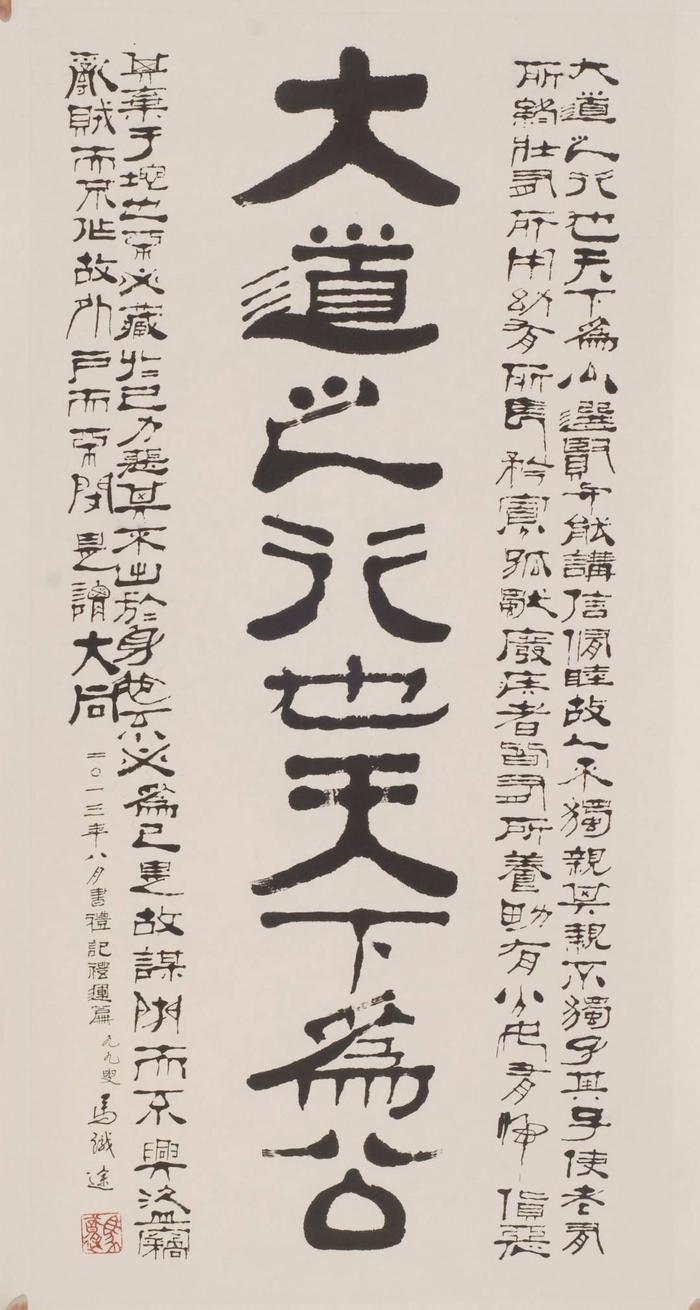 大道之行也天下為公選賢与能講信脩睦故人不獨親其親不獨子其子使老有
所終壯有所用幼有所長矜寡孤獨廢疾者皆有所養男有分女有歸貨惡
大道之行也天下為公
其棄于地也不必藏於己力惡其不出於身也不必為己是故謀閉而不興盜竊
亂賊而不作故外戶而不閉是謂大同 二〇一三年八月書禮記禮運篇 九九叟 馬識途